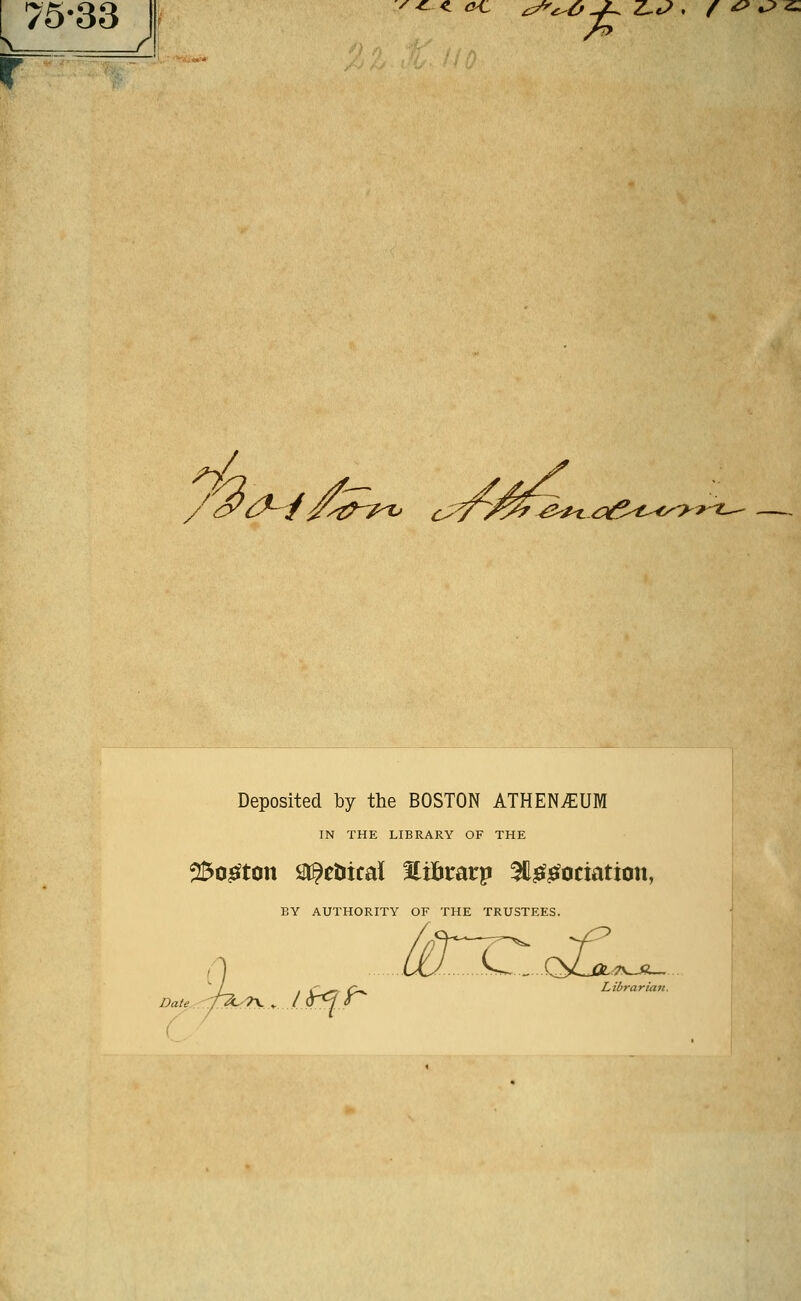 75.33
22.K.110
Boston Athenæum —
Deposited by the BOSTON ATHENÆUM
IN THE LIBRARY OF THE
Boston Medical Library Association,
BY AUTHORITY OF THE TRUSTEES.
W C Lane
Librarian.
Date Jan. 1898